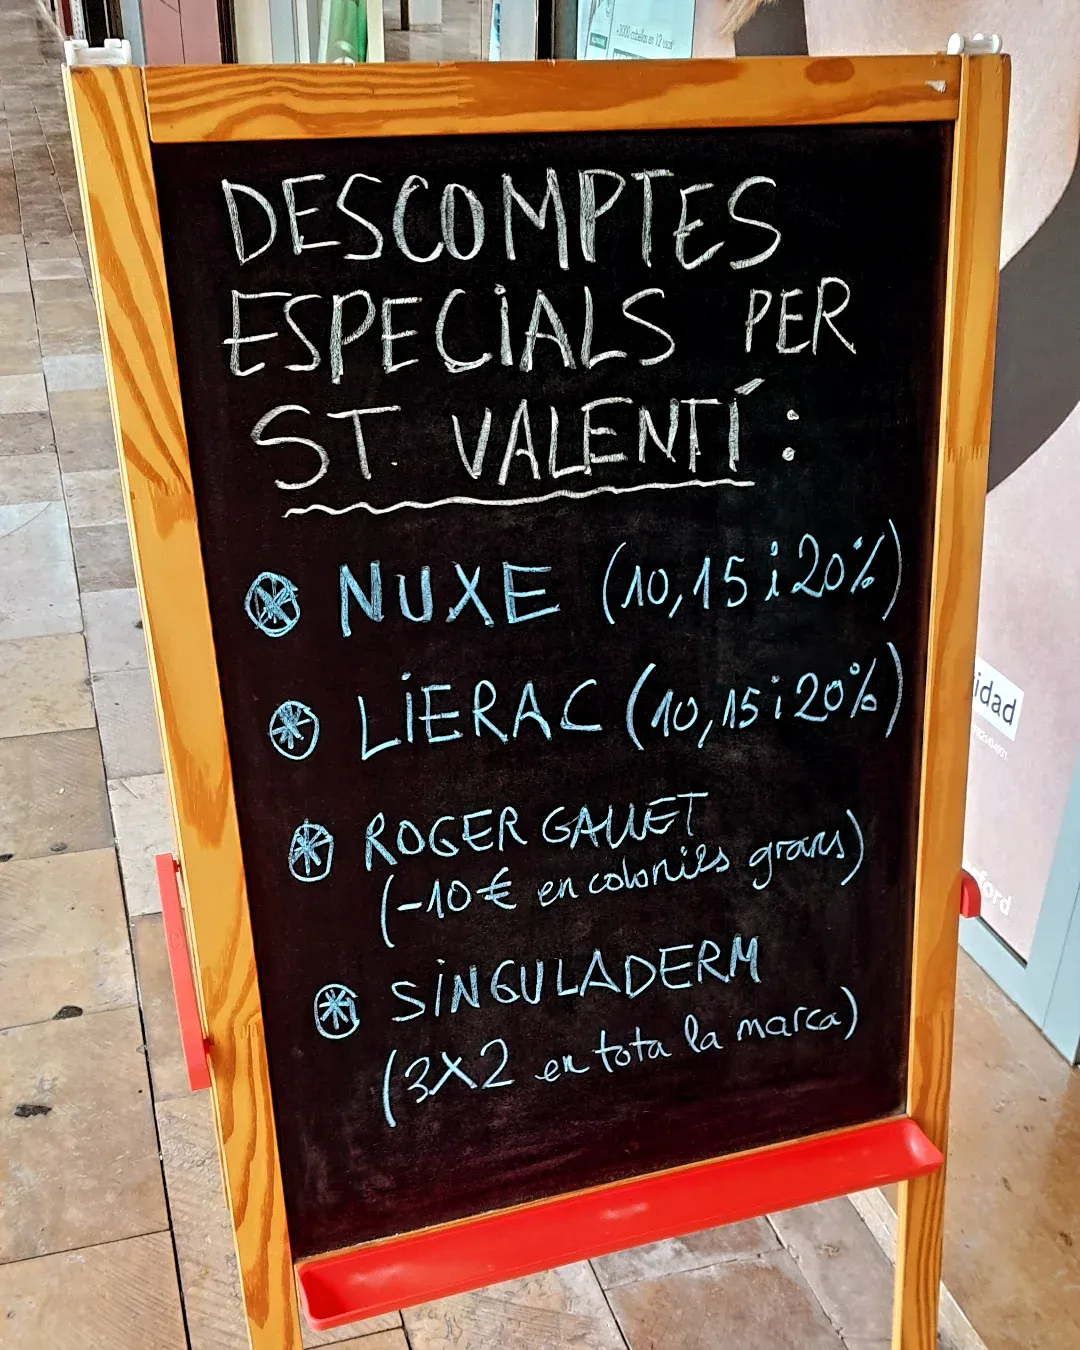 +3000 cabellos en 12 cas
DESCOMPTES
ESPECIALS PER
ST. VALENTÍ:
NUXE (10, 15 i 20%)
LIERAC (10, 15 i 20%)
ROGER GALLET
(-10€ en colonies grans)
SINGULADERM
(3X2 en tota la marca)
idad
ford